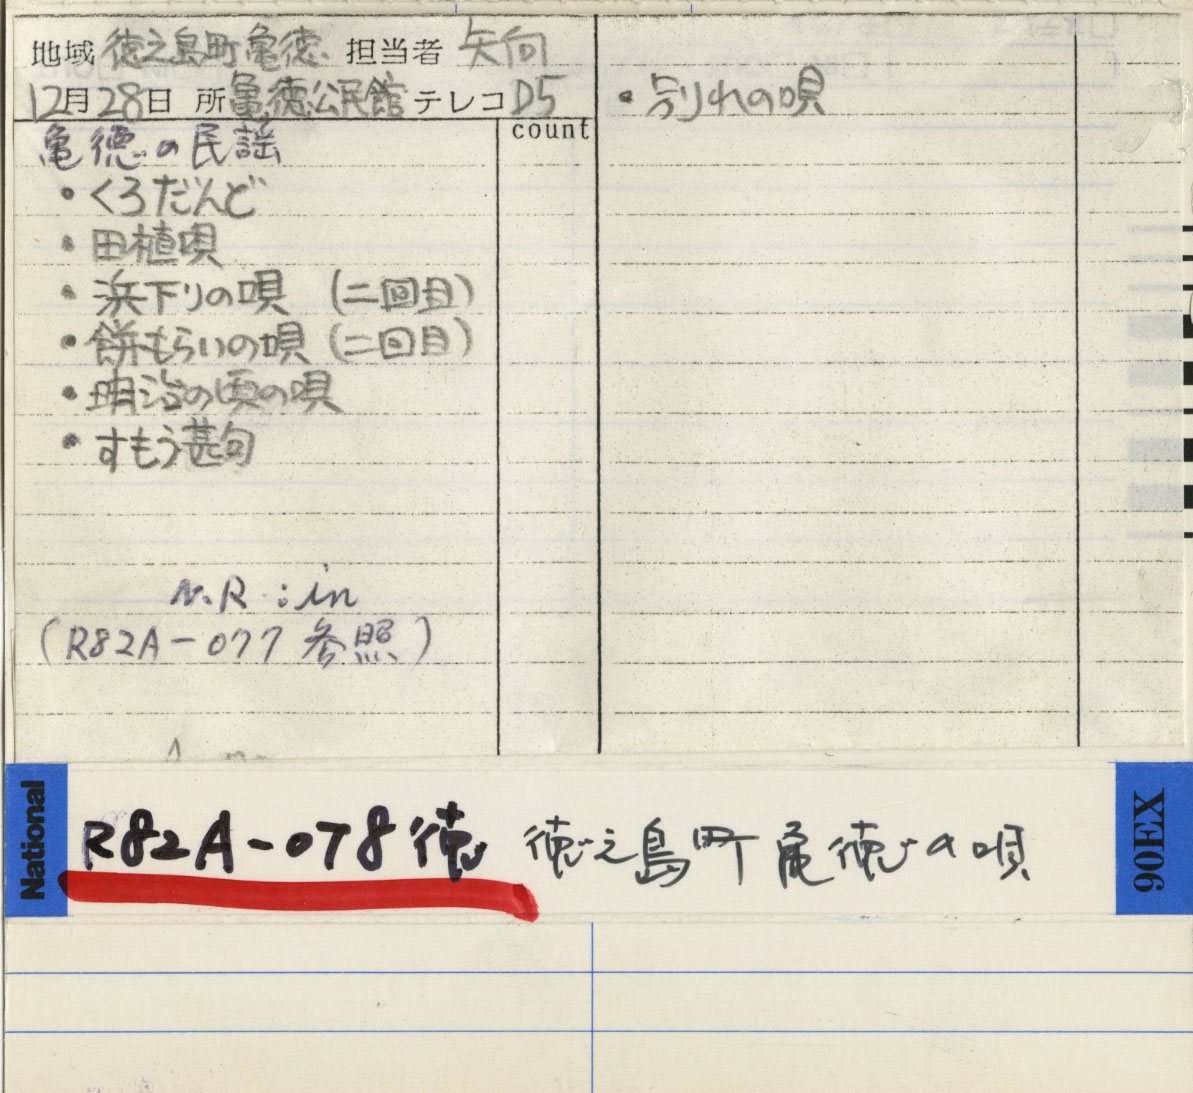 地域 徳之島町亀徳 担当者 矢向
12月28日 所 亀徳公民館 テレコ D5
count
亀徳の民謡
・くろだんど
・田植唄
・浜下りの唄 (二回目)
・餅もらいの唄 (二回目)
・明治の頃の唄
・すもう甚句
N.R : in
(R82A-077 参照)
・別れの唄
National
R82A-078徳 徳之島町亀徳の唄
90EX